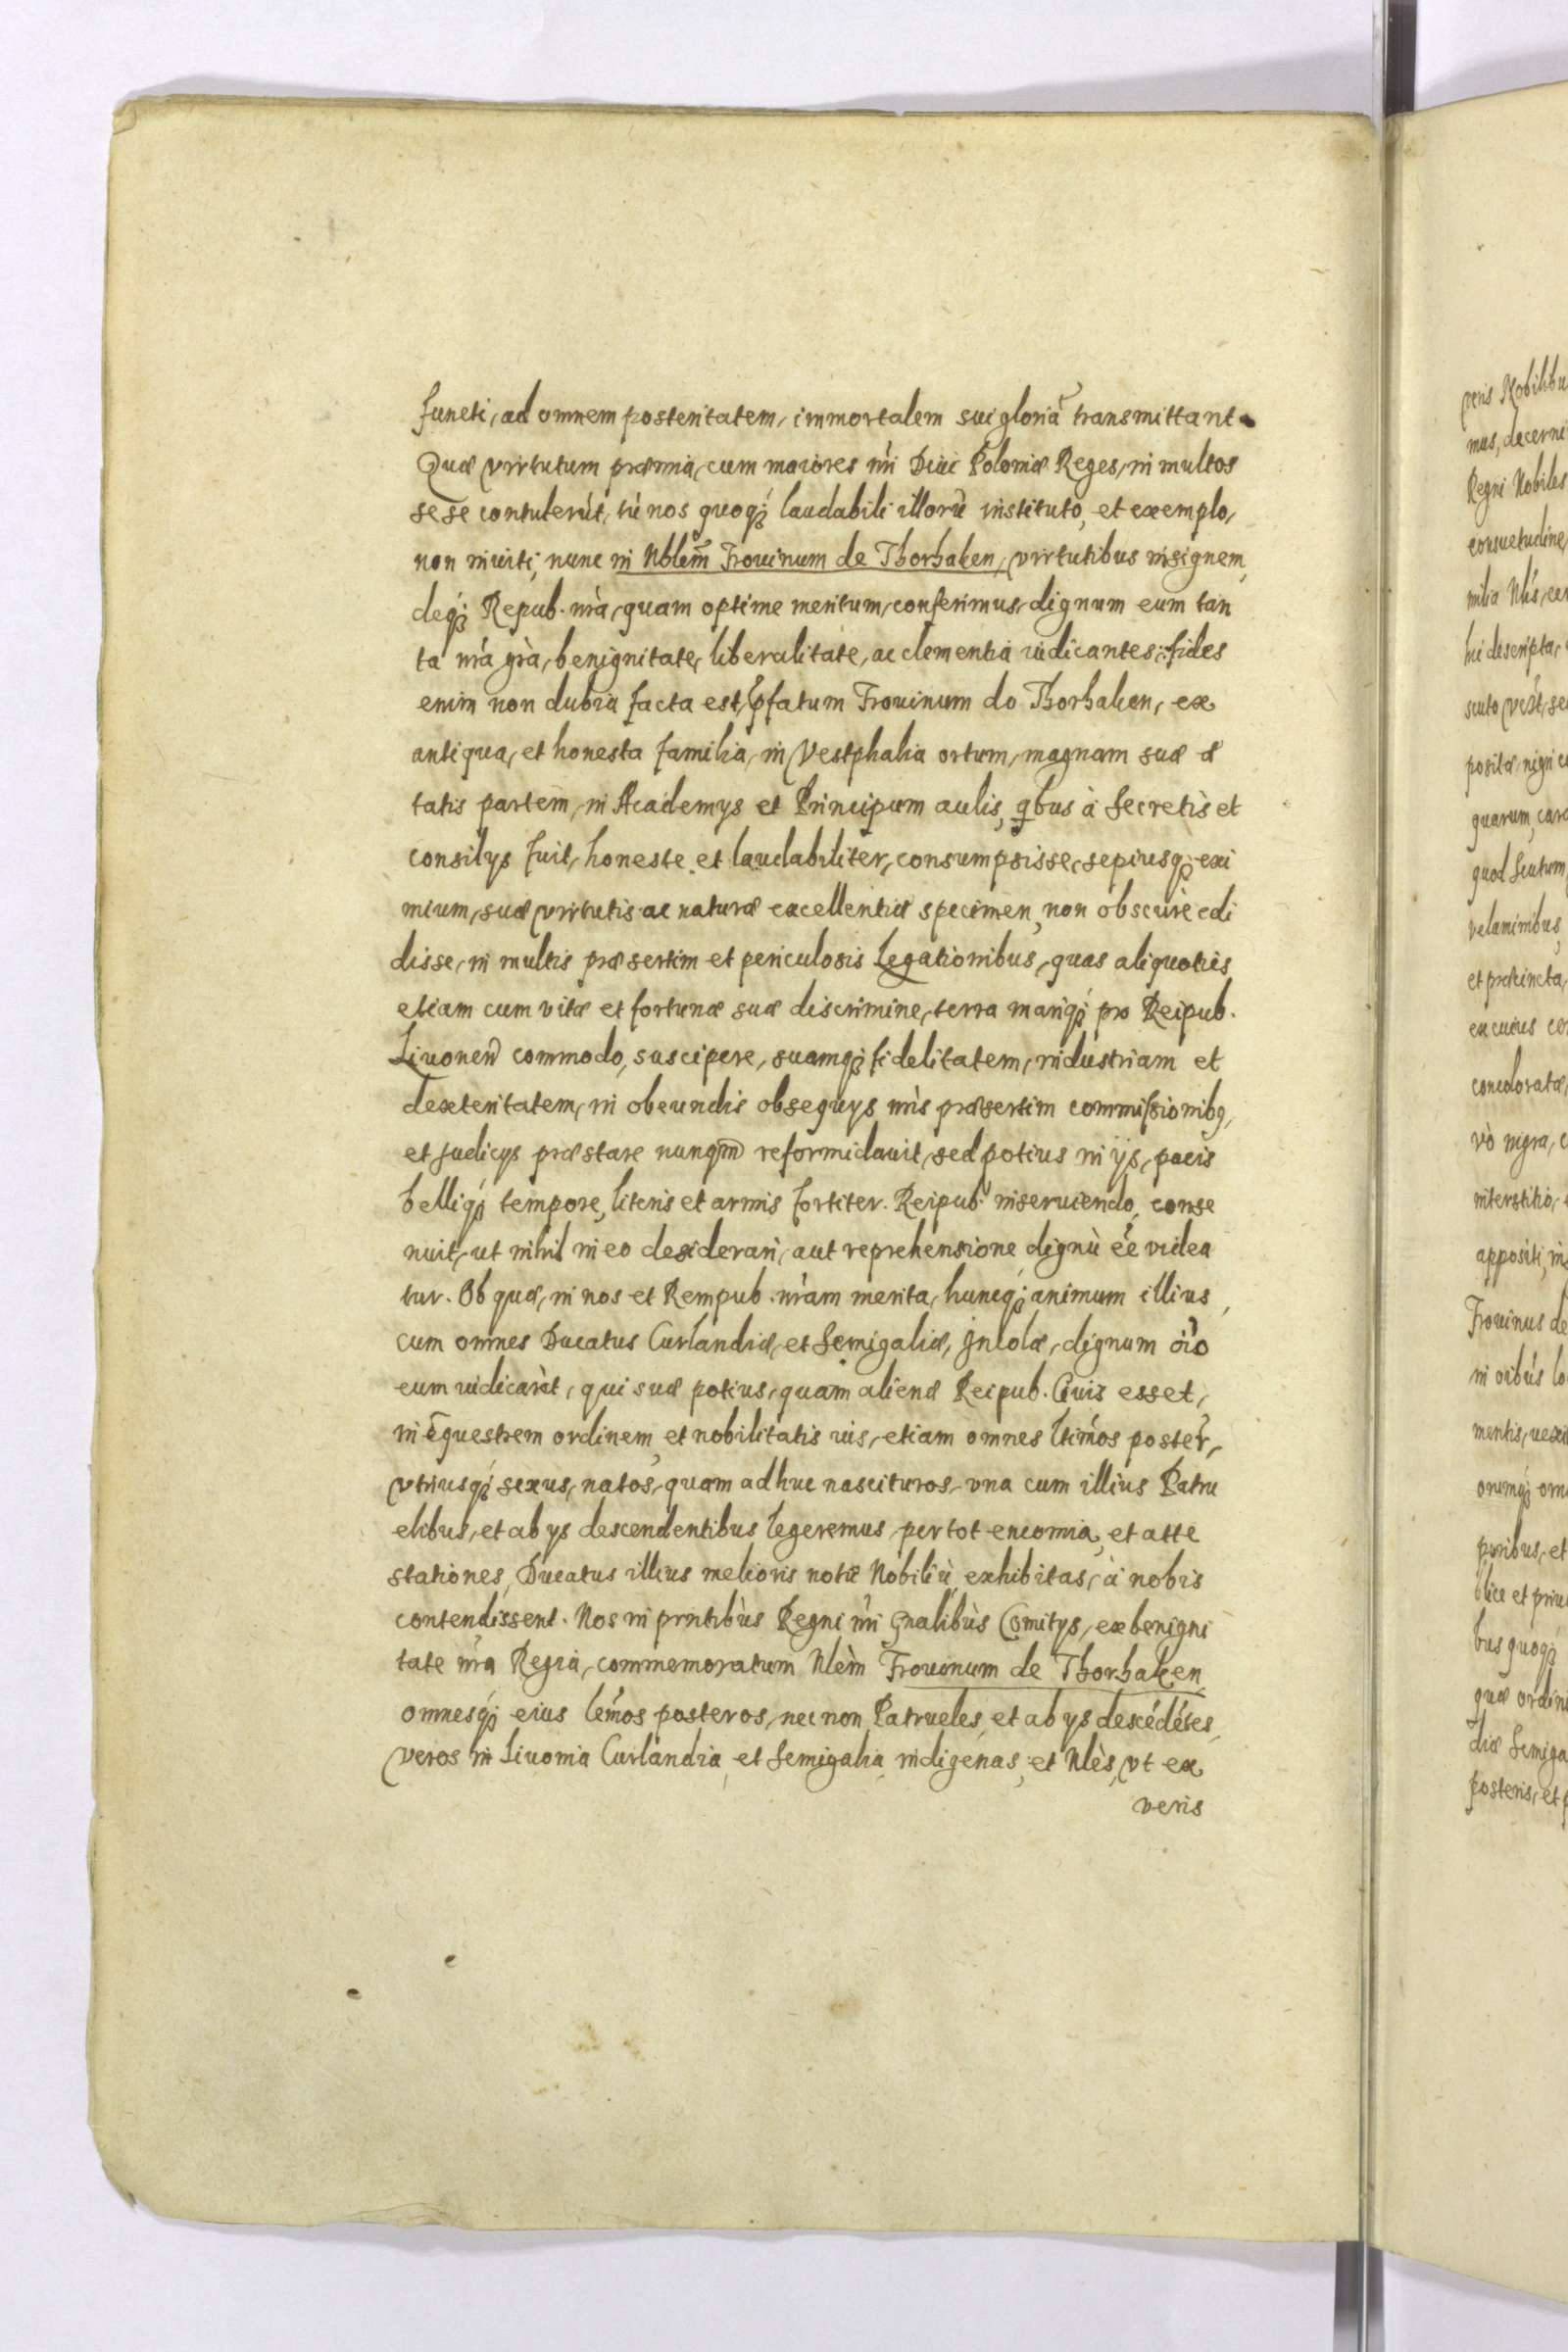 functi, ad omnem posteritatem, immortalem sui gloriā transmittant.
Quæ virtutum præmia, cum maiores nri Diui Poloniæ Reges, in multos
sese contulerūt, tū nos quoq; laudabili illorū instituto, et exemplo,
non inuiti, nunc in Nblem Frouinum de Thorhaken, virtutibus insignem,
deq; Repub. nrà, quam optime meritum, conferimus, dignum eum tan
ta nra grà, benignitate, liberalitate, ac clementia iudicantes: fides
enim non dubia facta est, pfatum Frouinum de Thorhaken, ex
antiqua, et honesta familia, in Vestphalia ortum, magnam suæ æ
tatis partem, in Academys et Principum aulis, qbus à Secretis et
consilys fuit, honeste et laudabiliter, consumpsisse, sepiusq; exi
mium, suæ virtutis ac naturæ excellentiæ specimen, non obscure edi
disse, in multis præsertim et periculosis Legationibus, quas aliquoties
etiam cum vitæ et fortunæ suæ discrimine, terra mariq; pro Reipub.
Liuonen commodo, suscipere, suamq; fidelitatem, industriam et
dexteritatem, in obeundis obsequys nris præsertim commissionibq,
et Judicys præstare nunqm reformidauit, sed potius in ijs, pacis
belliq; tempore, literis et armis fortiter. Reipub. inseruiendo, conse
nuit, ut nihil in eo desiderari, aut reprehensione dignū ēe videa
tur. Ob quæ, in nos et Rempub. nram merita, huncq; animum illius,
cum omnes Ducatus Curlandiæ, et Semigaliæ, Jncolæ, dignum oīo
eum iudicarūt, qui suæ potius, quam alienæ Reipub. Ciuis esset,
in Equestrem ordinem, et nobilitatis ius, etiam omnes ltimos poster,
vtriusq; sexus, natos, quam adhuc nascituros, vna cum illius Patru
elibus, et ab ys descendentibus legeremus, per tot encomia, et atte
stationes, Ducatus illius melioris notæ Nobiliū, exhibitas, à nobis
contendissent. Nos in prntibùs Regni nri Gnalibùs Comitys, ex benigni
tate nra Regia, commemoratum Nlèm Frouinum de Thorhaken
omnesq; eius lemos posteros, nec non Patrueles, et ab ys descēdētes,
veros in Liuonia Curlandia, et Semigalia, indigenas, et Nlès, vt ex
veris
veris Nobilibu
mus, decerni
Regni Nobiles
consuetudine
milia Nlis, cer
hic descripta,
positæ, nigri c
quarum, card
quod Scutum,
velaminibus,
et præcincta,
ex cuius co
concoloratæ,
vò nigra, c
interstitio,
appositi, in
Frouinus de
in oibus lo
mentis, vexil
orumq; orn
bus quoq;
quæ ordini
diæ Semiga
posteris, et